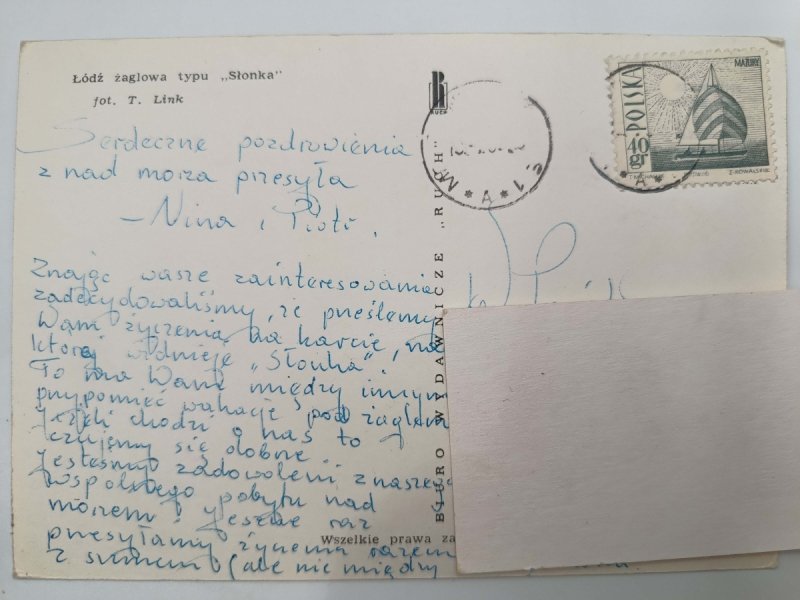 Łódź żaglowa typu „Słonka"
fot. T. Link
RUCH
POLSKA
MAZURY
40
gr
Serdeczne pozdrowienia
z nad morza przesyła
– Nina i Piotr.
Znając wasze zainteresowania
zadecydowaliśmy, że prześlemy
Wam życzenia na karcie, na
której widnieje „Słonka".
To ma Wam między innymi
przypomieć wakacje pod żaglami
Jeżeli chodzi o nas to
czujemy się dobrze
Jesteśmy zadowoleni z naszego
wspólnego pobytu nad
morzem. Jeszcze raz
przesyłamy życzenia razem
z sumem (ale nie między
BIURO WYDAWNICZE „RUCH"
Wszelkie prawa za